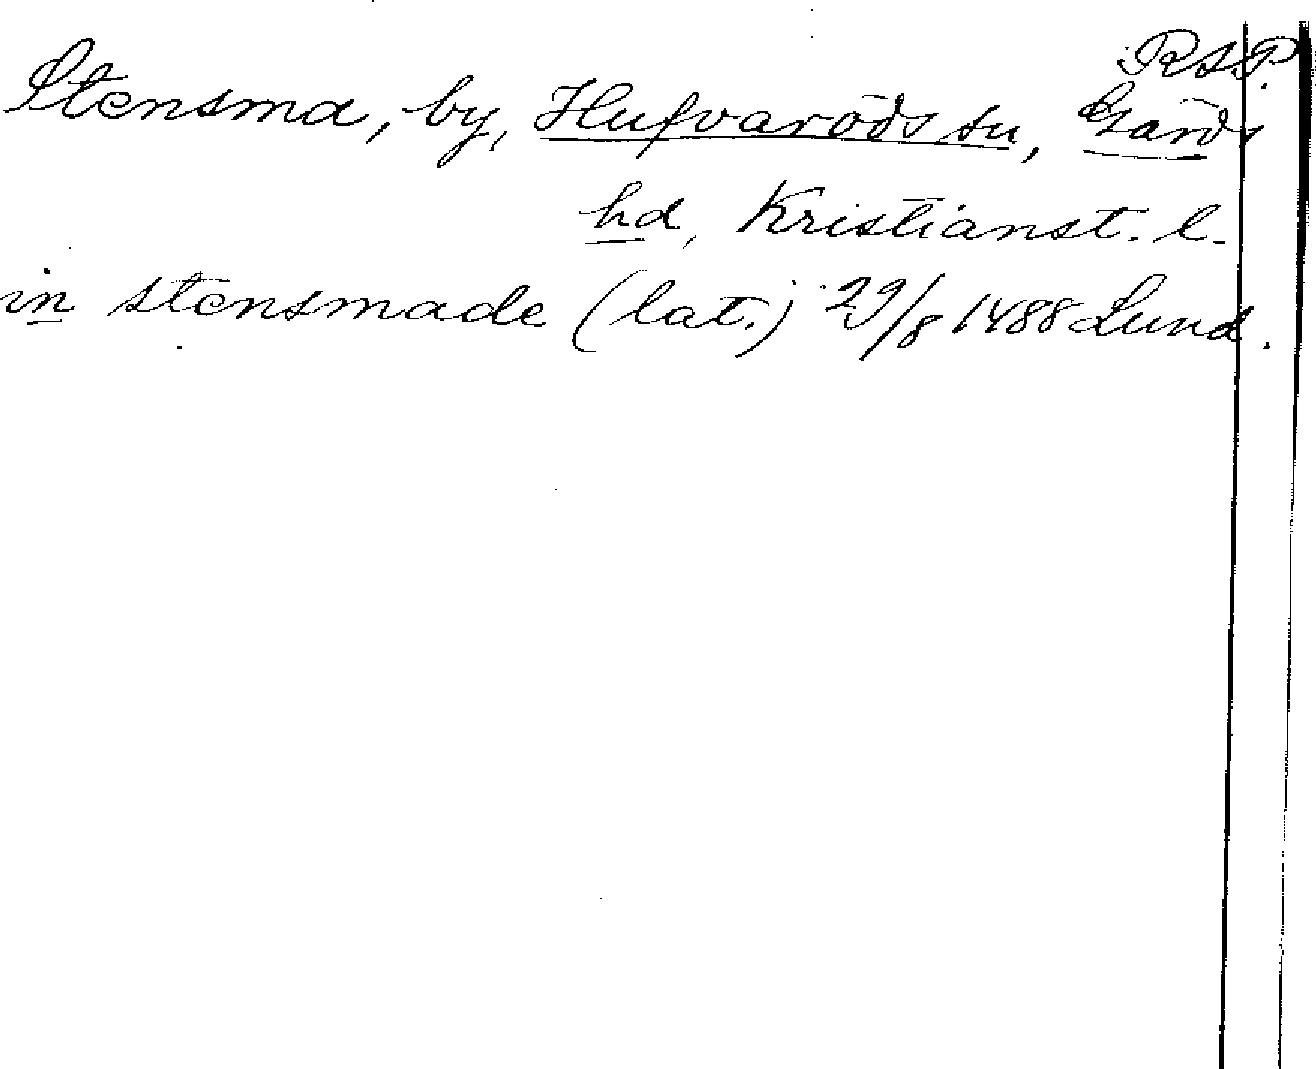 RAP.
Stensma, by, Hufvaröds su, Gärds
hd, Kristianst. l.
in stensmade (lat.) 29/8 1488 Lund.